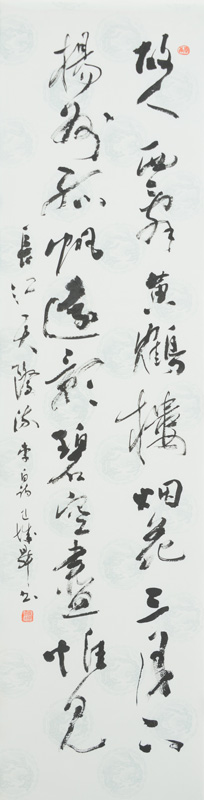 故人西辞黄鹤楼烟花三月下
揚州孤帆遠影碧空盡惟見
長江天際流 李白詩